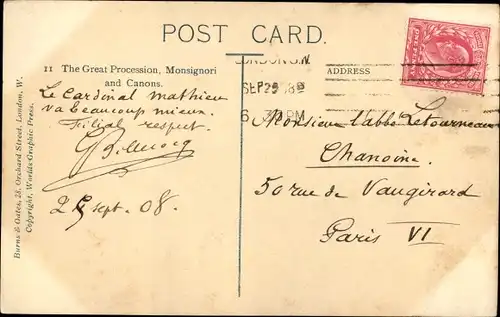 POST CARD.
11 The Great Procession, Monsignori
and Canons.
Le Cardinal Mathieu
va beaucoup mieux.
Filial respect
29 sept. 08.
Burns & Oates, 28, Orchard Street, London, W.
Copyright, Worlds-Graphic Press.
LONDON S.W
SEP 29 08
6 30 PM
ADDRESS
Monsieur l'abbé Letourneau
Chanoine.
50 rue de Vaugirard
Paris VI